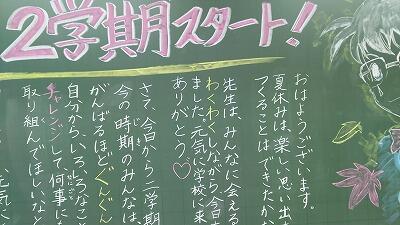 2学期スタート!
おはようございます。
夏休みは、楽しい思い出を
つくることはできたかな
先生は、みんなに会える
わくわくしながら、今日を
ました。元気に学校に来
ありがとう♡
さて、今日から二学期
今の時期のみんなは、
がんばるほどぐんぐん
自分からいろいろなこと
チャレンジして、何事にも
取り組んでほしいなと
元気に